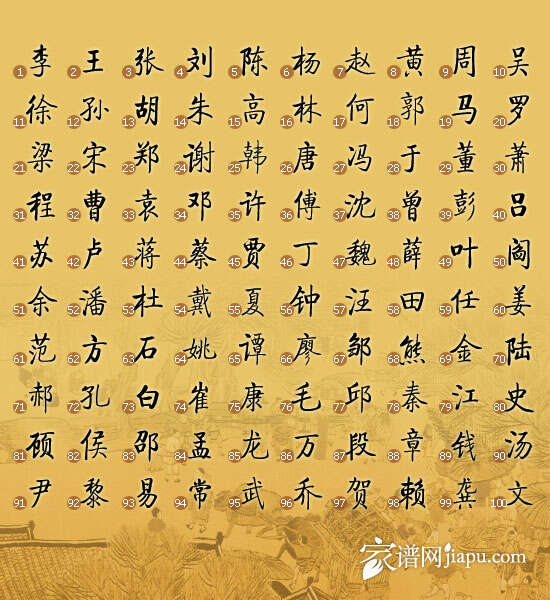 1 李 2 王 3 张 4 刘 5 陈 6 杨 7 赵 8 黄 9 周 10 吴
11 徐 12 孙 13 胡 14 朱 15 高 16 林 17 何 18 郭 19 马 20 罗
21 梁 22 宋 23 郑 24 谢 25 韩 26 唐 27 冯 28 于 29 董 30 萧
31 程 32 曹 33 袁 34 邓 35 许 36 傅 37 沈 38 曾 39 彭 40 吕
41 苏 42 卢 43 蒋 44 蔡 45 贾 46 丁 47 魏 48 薛 49 叶 50 阎
51 余 52 潘 53 杜 54 戴 55 夏 56 钟 57 汪 58 田 59 任 60 姜
61 范 62 方 63 石 64 姚 65 谭 66 廖 67 邹 68 熊 69 金 70 陆
71 郝 72 孔 73 白 74 崔 75 康 76 毛 77 邱 78 秦 79 江 80 史
81 顾 82 侯 83 邵 84 孟 85 龙 86 万 87 段 88 章 89 钱 90 汤
91 尹 92 黎 93 易 94 常 95 武 96 乔 97 贺 98 赖 99 龚 100 文
家谱网jiapu.com